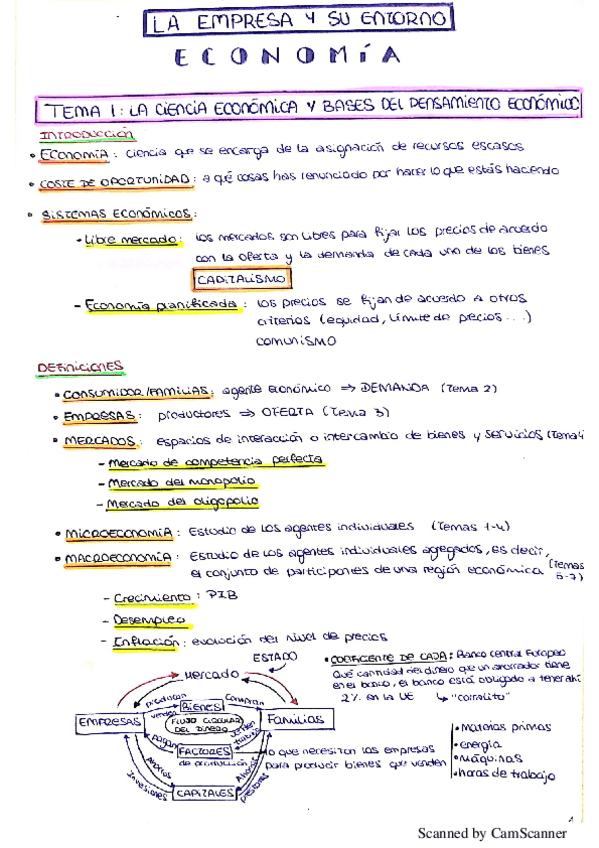 LA EMPRESA Y SU ENTORNO
ECONOMÍA
TEMA 1: LA CIENCIA ECONÓMICA Y BASES DEL PENSAMIENTO ECONÓMICO
INTRODUCCIÓN
• ECONOMÍA: ciencia que se encarga de la asignación de recursos escasos
• COSTE DE OPORTUNIDAD: a qué cosas has renunciado por hacer lo que estás haciendo
• SISTEMAS ECONÓMICOS:
- Libre mercado: los mercados son libres para fijar los precios de acuerdo
con la oferta y la demanda de cada uno de los bienes
CAPITALISMO
- Economía planificada: los precios se fijan de acuerdo a otros
criterios (equidad, límite de precios...)
COMUNISMO
DEFINICIONES
• CONSUMIDOR/FAMILIAS: agente económico ⇒ DEMANDA (Tema 2)
• EMPRESAS: productores ⇒ OFERTA (Tema 3)
• MERCADOS: espacios de interacción o intercambio de bienes y servicios (Tema 4
- Mercado de competencia perfecta
- Mercado del monopolio
- Mercado del oligopolio
• MICROECONOMÍA: Estudio de los agentes individuales (Temas 1-4)
• MACROECONOMÍA: Estudio de los agentes individuales agregados, es decir,
el conjunto de participantes de una región económica (Temas
5-7)
- Crecimiento: PIB
- Desempleo
- Inflación: evolución del nivel de precios
ESTADO
Mercado
producen
venden
BIENES
compran
EMPRESAS
FLUJO CIRCULAR
DEL DINERO
Familias
pagan
venden
FACTORES
de producción
Ahorros
Inversiones
CAPITALES
Ahorros
préstamos
• COEFICIENTE DE CAJA: Banco Central Europeo
Qué cantidad del dinero que un ahorrador tiene
en el banco, el banco está obligado a tener ahí
2% en la UE ↳ "corralito"
lo que necesitan las empresas
para producir bienes que venden
• Materias primas
• energía
• Máquinas
• horas de trabajo
1
Scanned by CamScanner